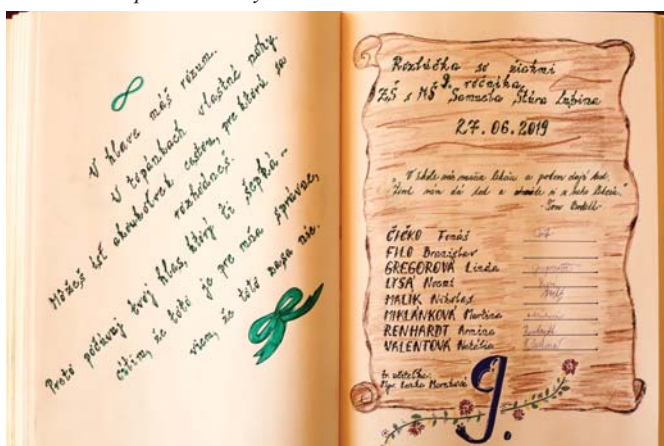 V hlave máš rozum.
V topánkach vlastné nohy.
Môžeš ísť akoukoľvek cestou, pre ktorú sa
rozhodneš.
Preto počúvaj tvoj hlas, ktorý ti šepká –
cítim, že toto je pre mňa správne,
viem, že toto zasa nie.
Rozlúčka so žiakmi
9. ročníka
ZŠ s MŠ Samuela Stará Ľubovňa
27.06.2019
"V škole nás naučia lekciu a potom dajú test.
Život vám dá test a z neho lekciu."
ČIČKO Tomáš
FILO Branislav
GREGOROVÁ Linda
LYSÁ Noemi
MALIK Nikolas
MIKLÁNKOVÁ Martina
RENHARDT Armina
VALENTOVÁ Natália
tr. učiteľka:
Mgr. Lenka
9.